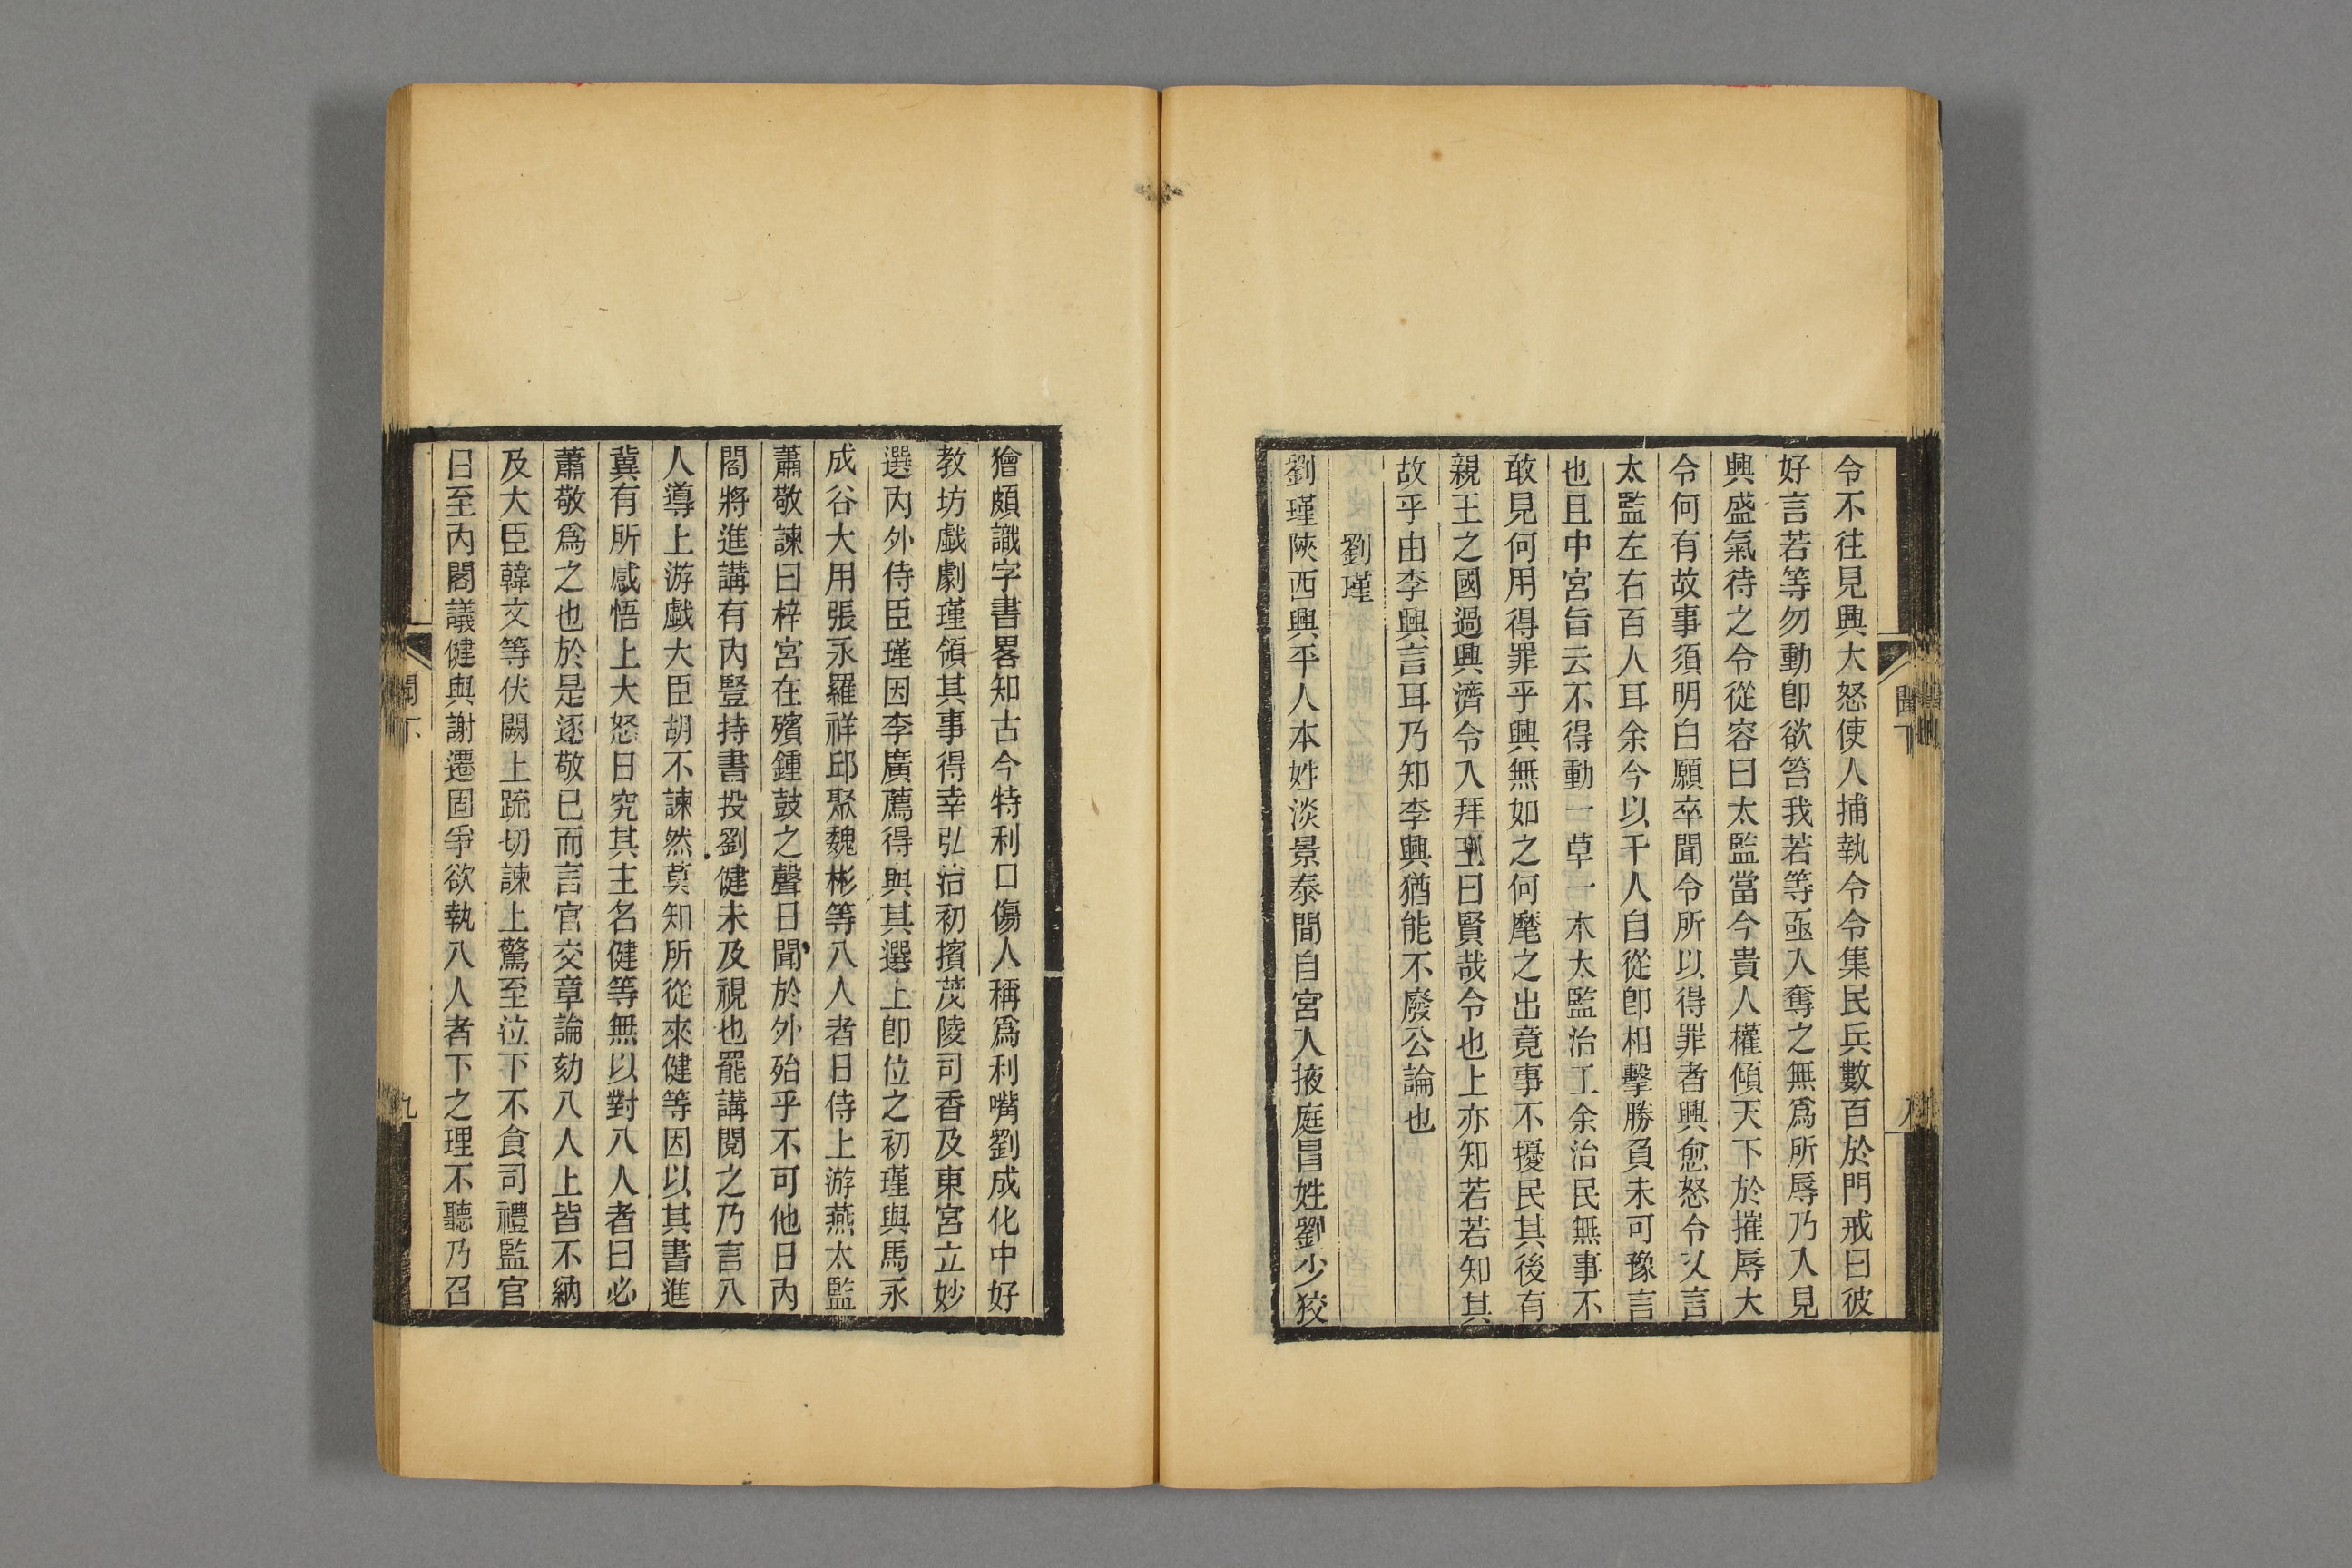 令不往見興大怒使人捕執令令集民兵數百於門戒曰彼
好言若等勿動卽欲笞我若等亟入奪之無爲所辱乃入見
興盛氣待之令從容曰太監當今貴人權傾天下於摧辱大
令何有故事須明白願卒聞令所以得罪者興愈怒令乂言
太監左右百人耳余今以千人自從卽相擊勝負未可豫言
也且中宮旨云不得動一草一木太監治工余治民無事不
敢見何用得罪乎興無如之何麾之出竟事不擾民其後有
親王之國過興濟令入拜王曰賢哉令也上亦知若若知其
故乎由李興言耳乃知李興猶能不廢公論也
劉瑾
劉瑾陜西興平人本姓淡景泰間自宮入掖庭冒姓劉少狡
聞下
八
獪頗識字書畧知古今特利口傷人稱爲利嘴劉成化中好
教坊戲劇瑾領其事得幸弘治初擯茂陵司香及東宮立妙
選內外侍臣瑾因李廣薦得與其選上卽位之初瑾與馬永
成谷大用張永羅祥邱聚魏彬等八人者日侍上游燕太監
蕭敬諫曰梓宮在殯鍾鼓之聲日聞於外殆乎不可他日內
閣將進講有內豎持書投劉健未及視也罷講閱之乃言八
人導上游戲大臣胡不諫然莫知所從來健等因以其書進
冀有所感悟上大怒曰究其主名健等無以對八人者曰必
蕭敬爲之也於是逐敬已而言官交章論劾八人上皆不納
及大臣韓文等伏闕上疏切諫上驚至泣下不食司禮監官
日至內閣議健與謝遷固爭欲執八人者下之理不聽乃召
聞下
九